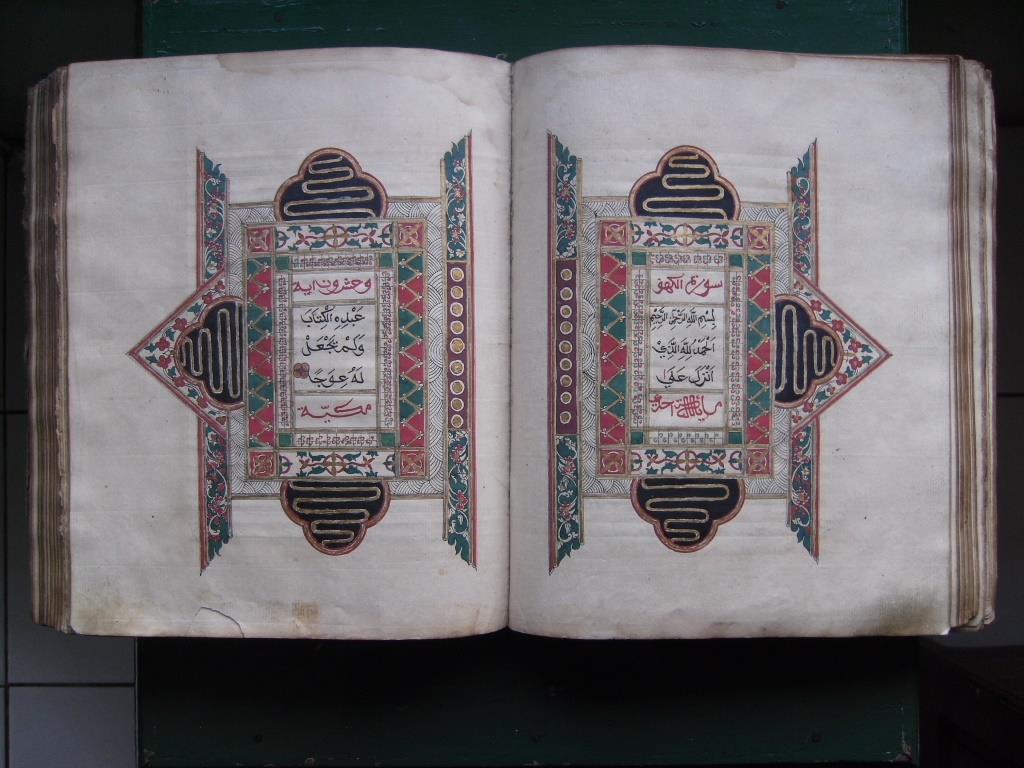 سورة الكهف
بِسْمِ اللهِ الرَّحْمٰنِ الرَّحِيْمِ
اَلْحَمْدُ لِلّٰهِ الَّذِيْ
اَنْزَلَ عَلٰي
وعشرون اية
عَبْدِهِ الْكِتَابَ
وَلَمْ يَجْعَلْ
لَهُ عِوَجًا
مكية